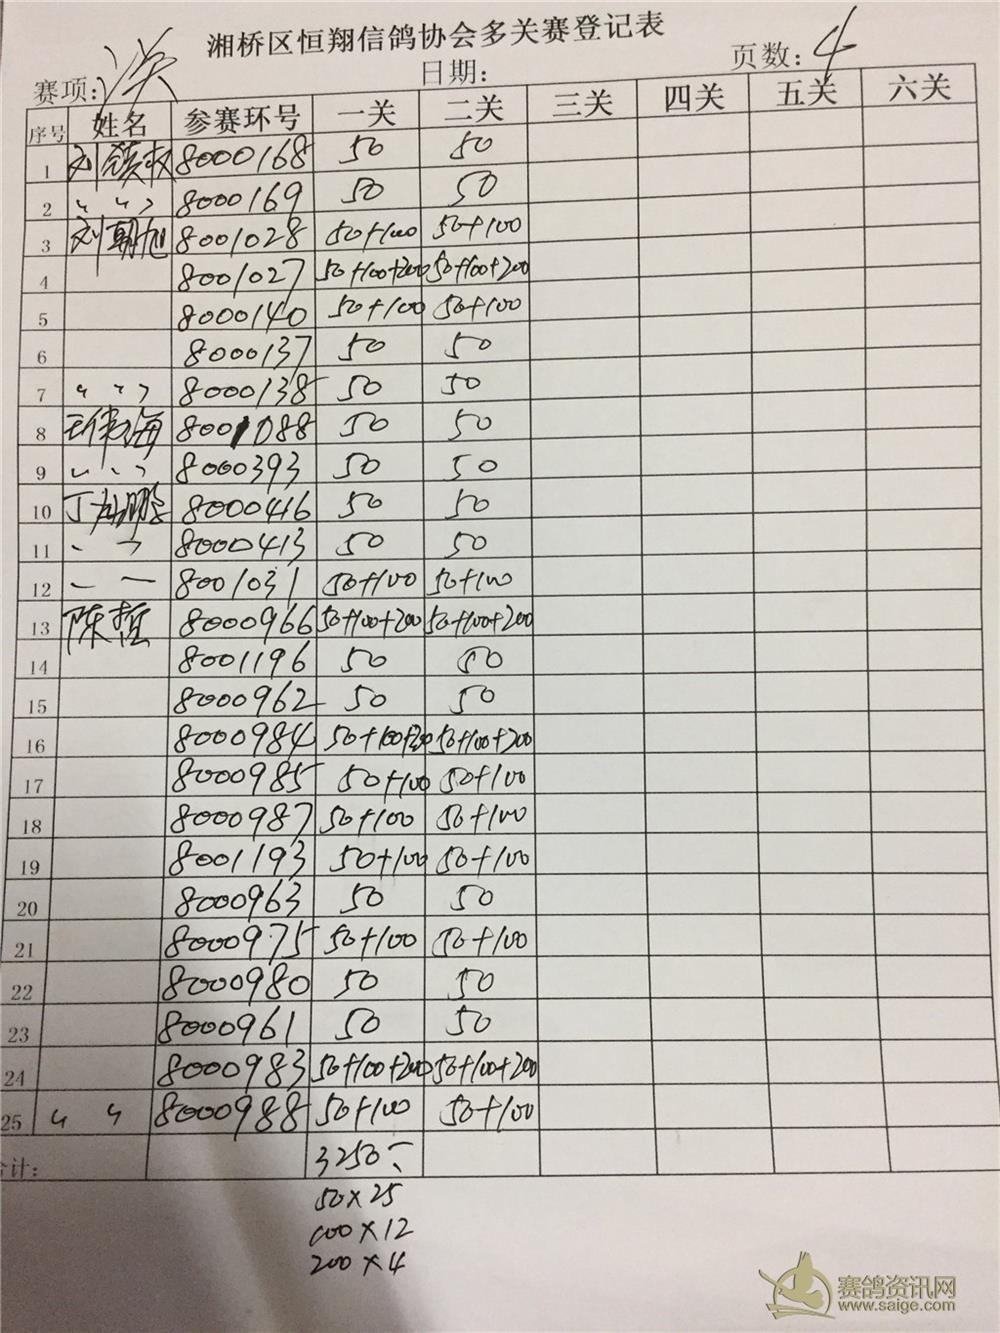 湘桥区恒翔信鸽协会多关赛登记表
赛项: 决 日期: 页数: 4
序号 姓名 参赛环号 一关 二关 三关 四关 五关 六关
1 刘 8000168 50 50
2 " " 8000169 50 50
3 刘朝旭 8001028 50+100 50+100
4 8001027 50+100+200 50+100+200
5 8000140 50+100 50+100
6 8000137 50 50
7 " " 8000138 50 50
8 王伟海 8001088 50 50
9 " " 8000393 50 50
10 丁 鹏 8000416 50 50
11 " 8000413 50 50
12 — — 8001031 50+100 50+100
13 陈哲 8000966 50+100+200 50+100+200
14 8001196 50 50
15 8000962 50 50
16 8000984 50+100+200 50+100+200
17 8000985 50+100 50+100
18 8000987 50+100 50+100
19 8001193 50+100 50+100
20 8000963 50 50
21 8000975 50+100 50+100
22 8000980 50 50
23 8000961 50 50
24 8000983 50+100+200 50+100+200
25 " " 8000988 50+100 50+100
合计: 3250
50×25
100×12
200×4
赛鸽资讯网
www.saige.com